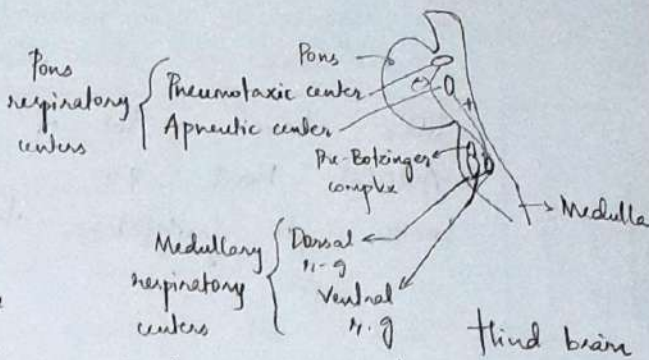 Pons
respiratory
centers
Pons
Pneumotaxic center
Apneutic center
(-)
+
Pre-Botzinger
complex
Medulla
Medullary
respiratory
centers
Dorsal
r.g
Ventral
r.g
Hind brain